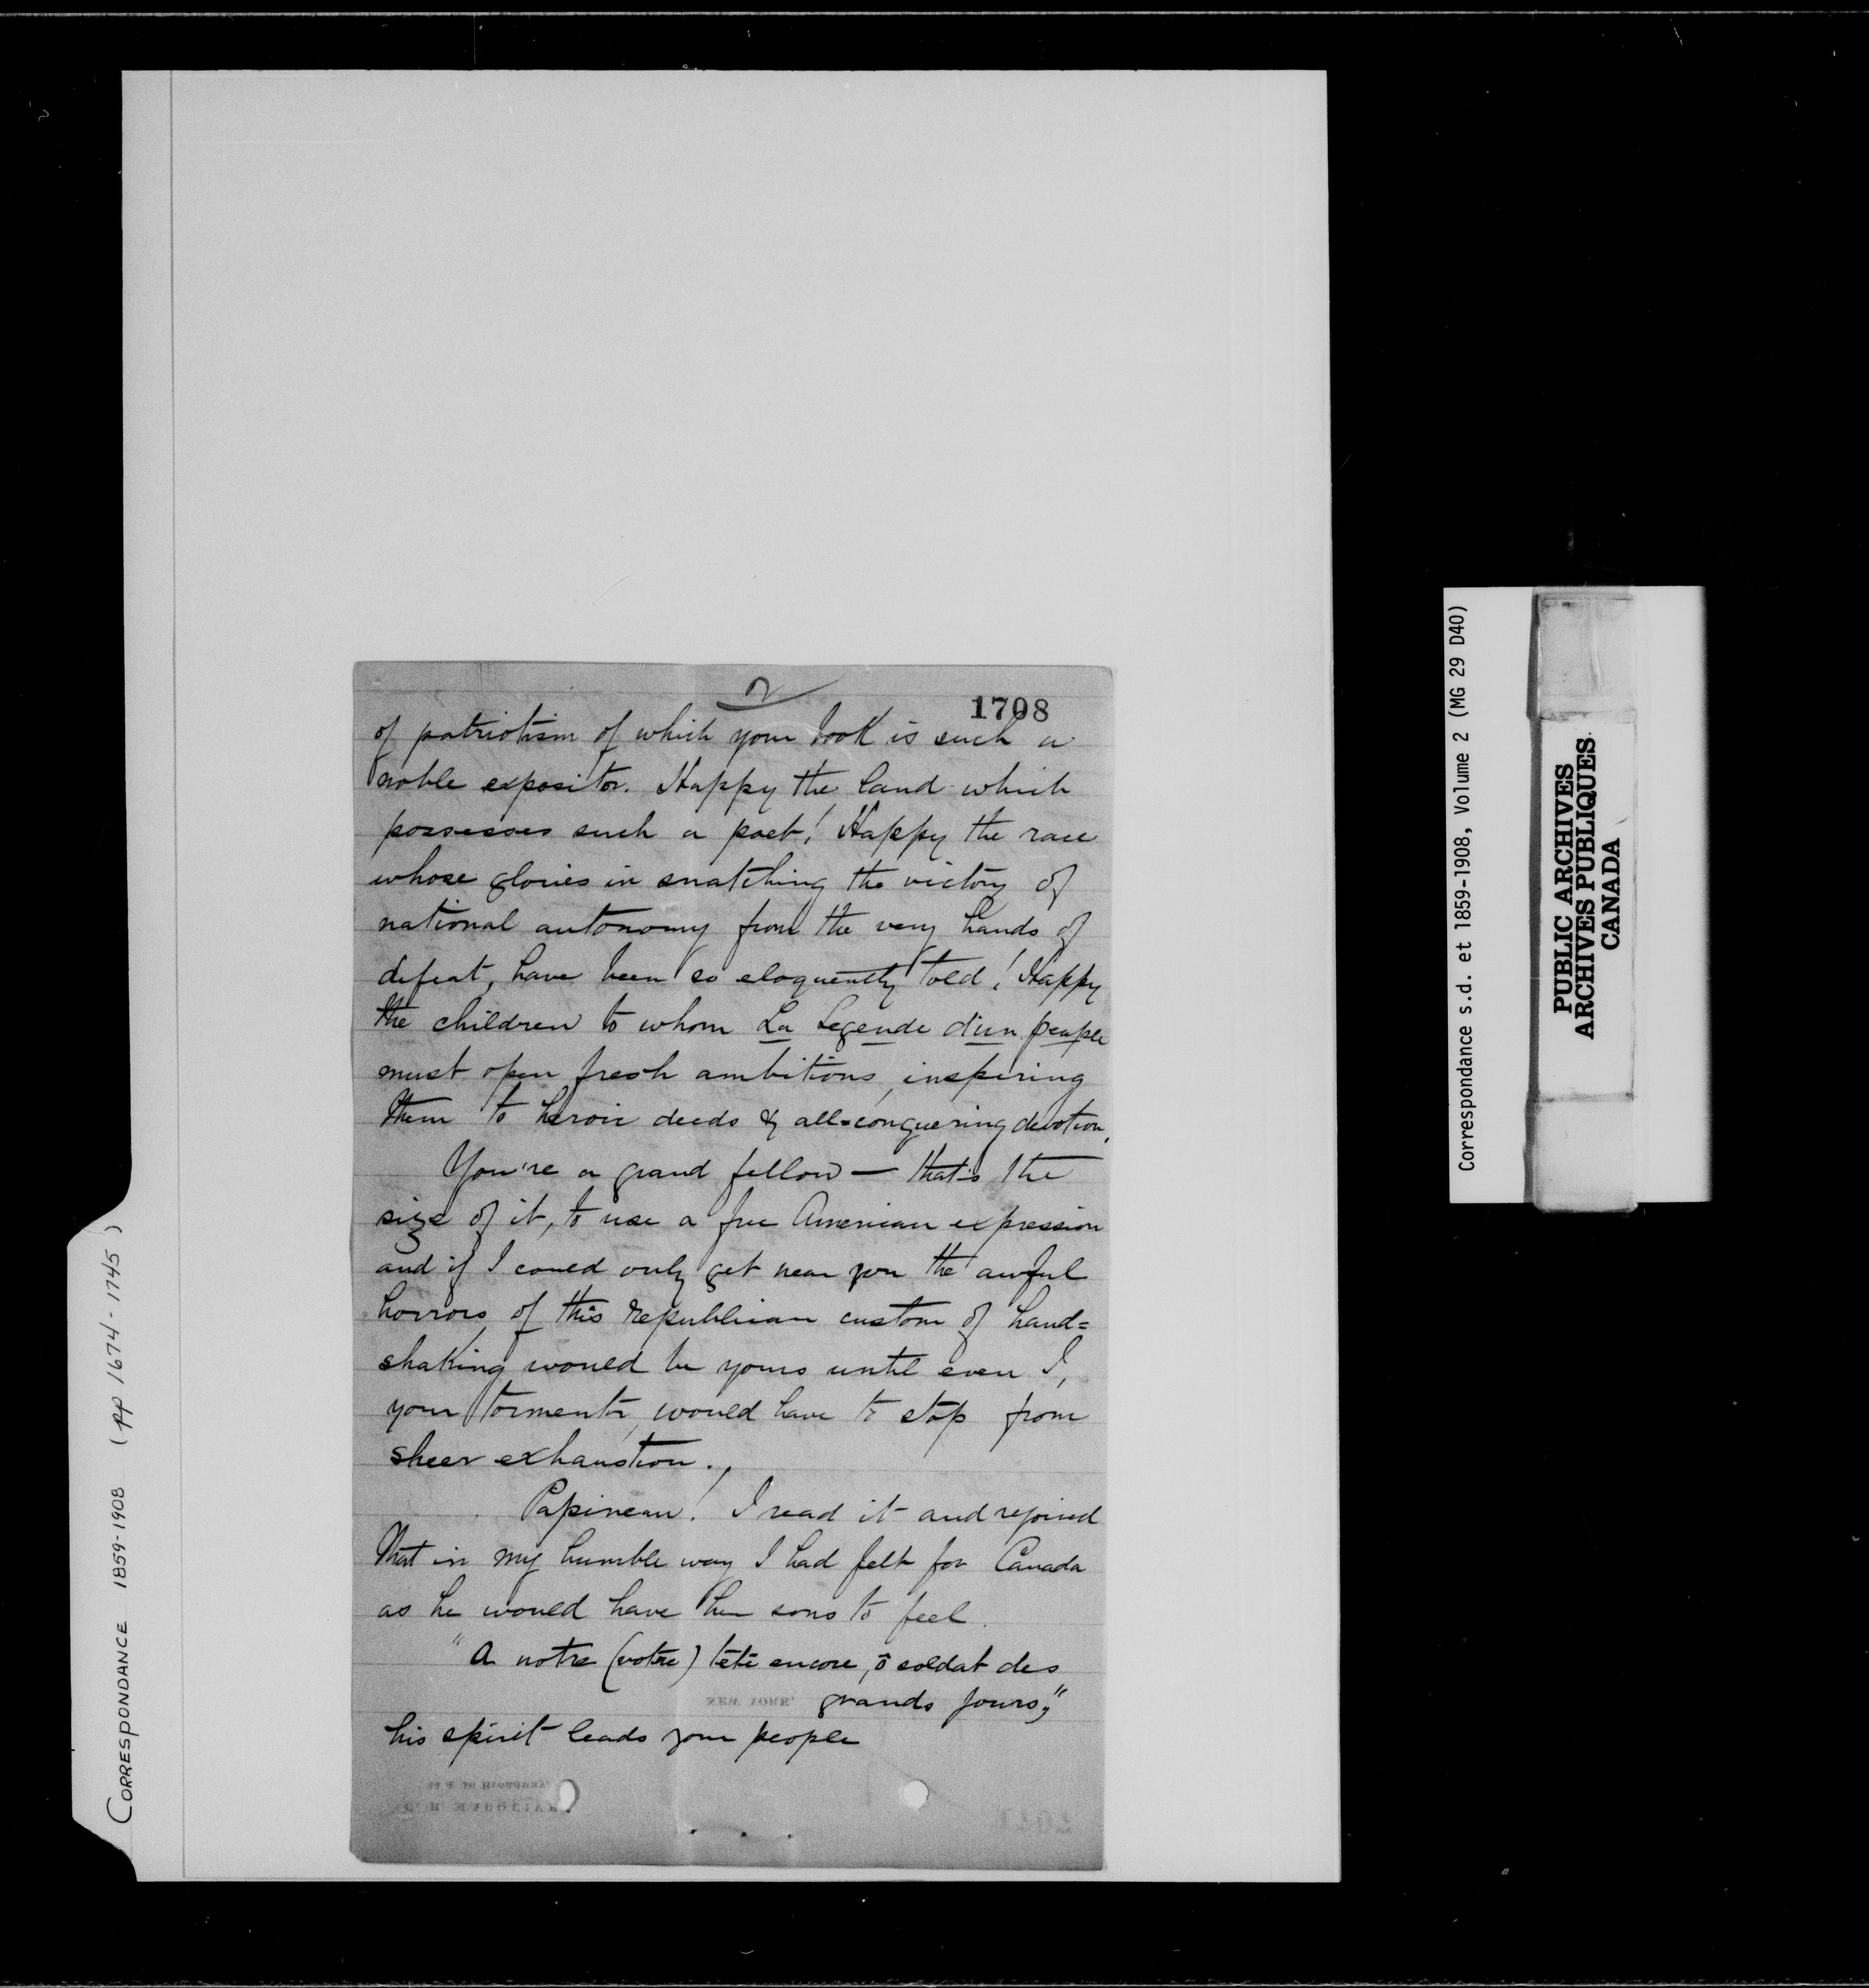 2
1708
of patriotism of which your book is such a
noble expositor. Happy the land which
possesses such a poet! Happy the race
whose glories in snatching the victory of
national autonomy from the very hands of
defeat, have been so eloquently told! Happy
the children to whom La Legende d'un peuple
must open fresh ambitions, inspiring
them to heroic deeds & all-conquering devotion.
You're a grand fellow — that's the
size of it, to use a free American expression
and if I could only get near you the awful
horrors of this republican custom of hand=
shaking would be yours until even I,
your tormentor, would have to stop from
sheer exhaustion.
Papineau! I read it and rejoiced
that in my humble way I had felt for Canada
as he would have her sons to feel.
"A notre (votre) tête encore, ô soldat des
grands jours,"
his spirit leads your people
NEW YORK
CORRESPONDANCE 1859-1908 (pp 1674-1745)
Correspondance s.d. et 1859-1908, Volume 2 (MG 29 D40)
PUBLIC ARCHIVES
ARCHIVES PUBLIQUES
CANADA